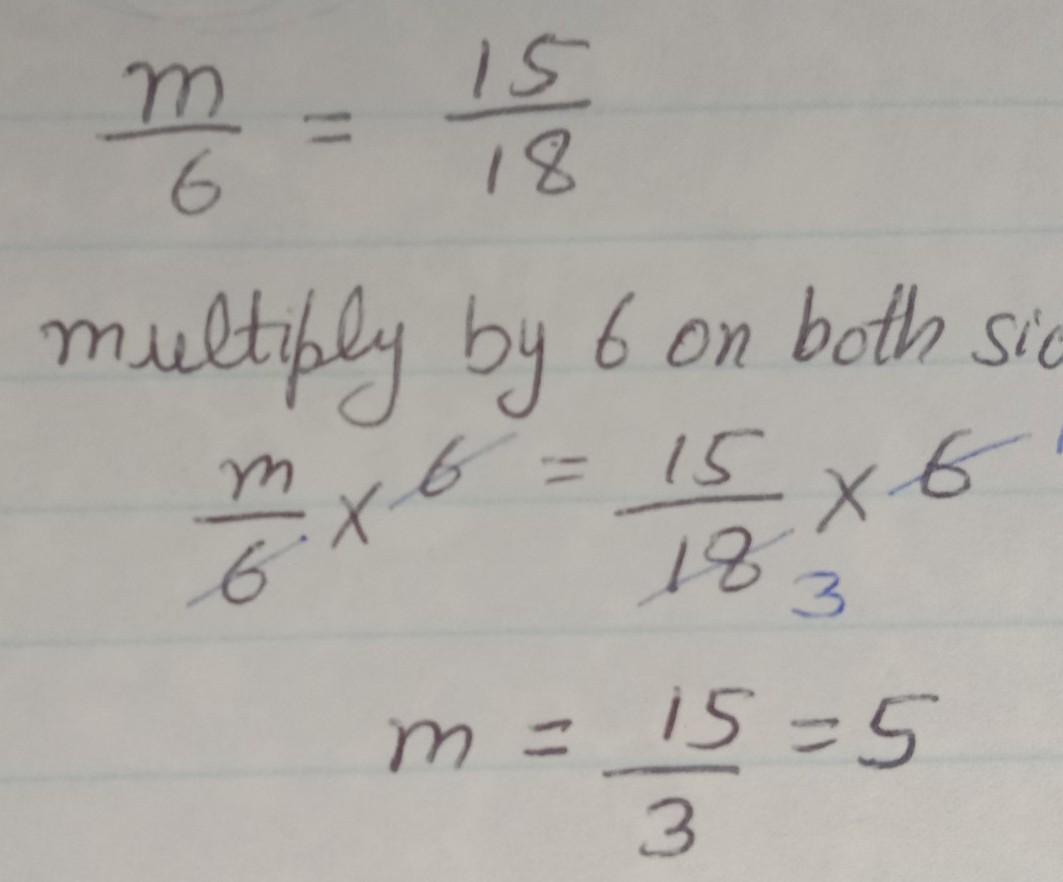 m/6 = 15/18
multiply by 6 on both
m/6 × 6 = 15/18 × 6
3
m = 15/3 = 5